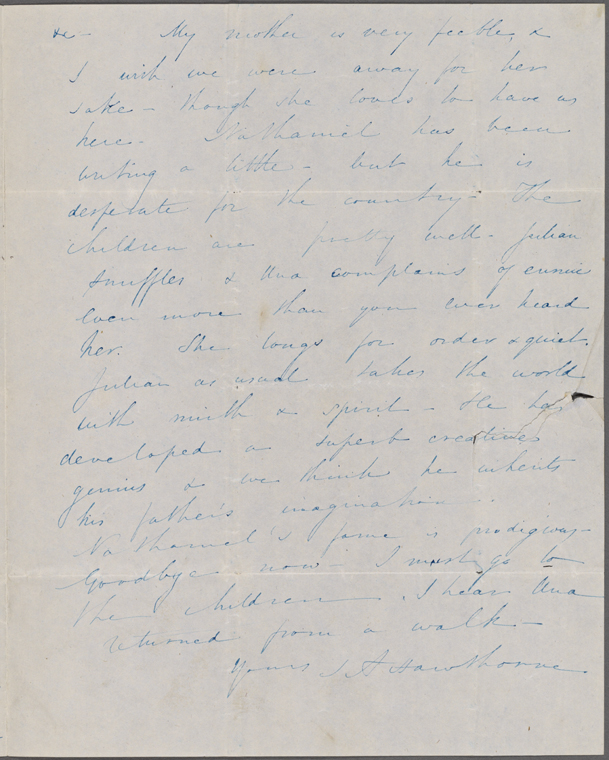 &c - My mother is very feeble, &
I wish we were away for her
sake - though she loves to have us
here - Nathaniel has been
writing a little - but he is
desperate for the country - The
children are pretty well - Julian
snuffles & Una complains of ennui
even more than you ever heard
her. She longs for order & quiet.
Julian as usual takes the world
with mirth & spirit - He has
developed a superb creative
genius & we think he inherits
his father's imagination.
Nathaniel's fame is prodigious -
Goodbye now - I must go to
the children. I hear Una
returned from a walk -
Yours S A Hawthorne